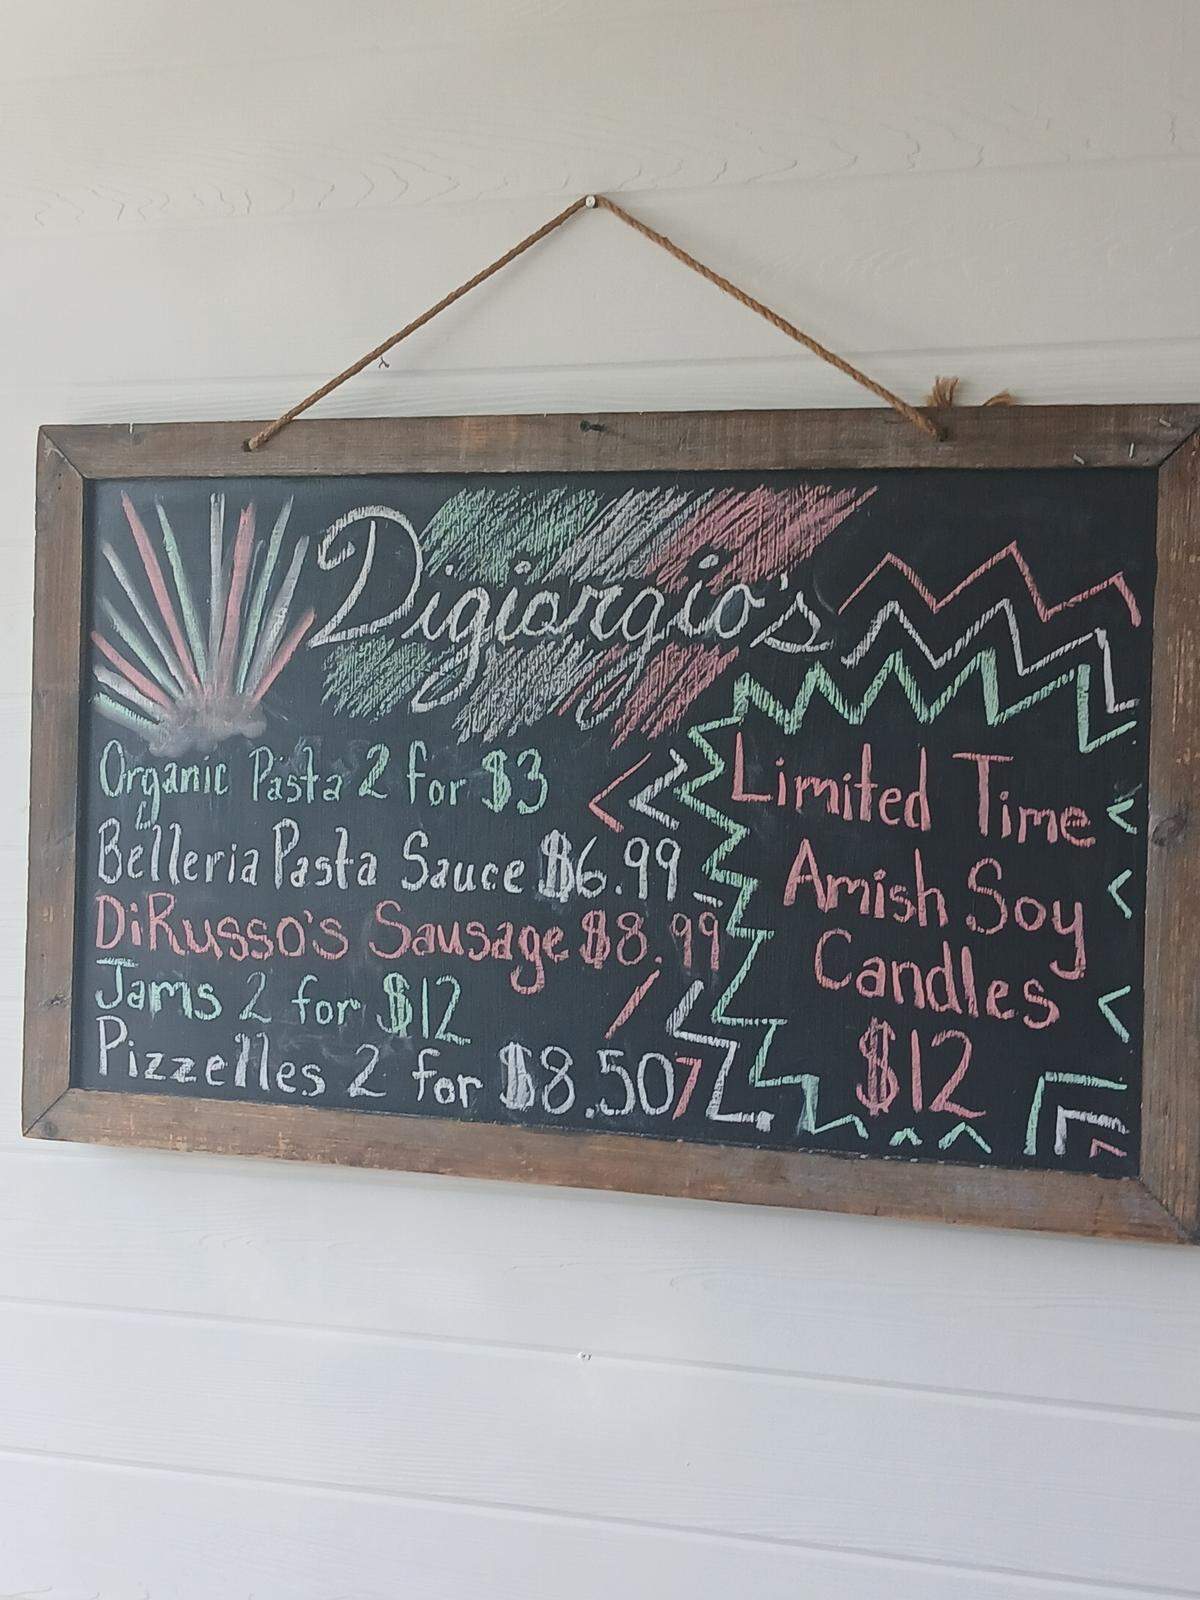 Digiorgio's
Organic Pasta 2 for $3
Belleria Pasta Sauce $6.99
DiRusso's Sausage $8.99
Jams 2 for $12
Pizzelles 2 for $8.50
Limited Time
Amish Soy
Candles
$12